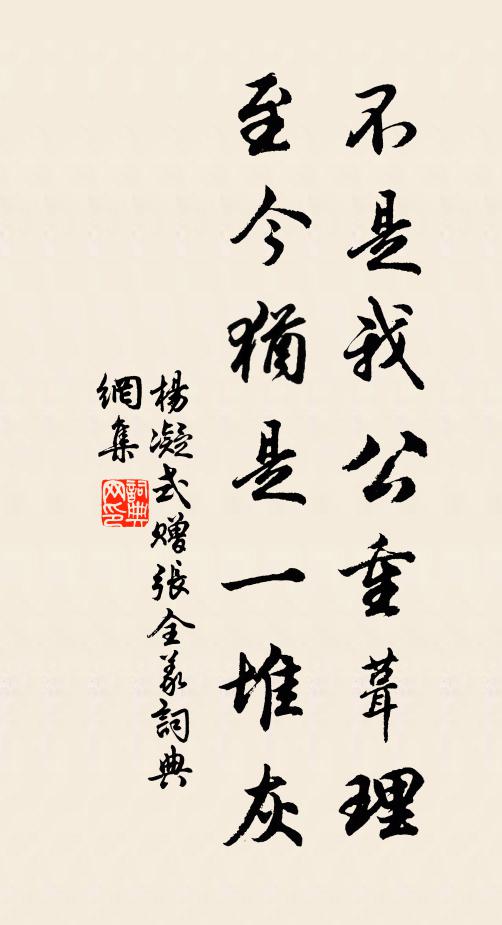 不是我公重葺理
至今猶是一堆灰
楊凝式贈張全義詞典
網集
詞典
网印